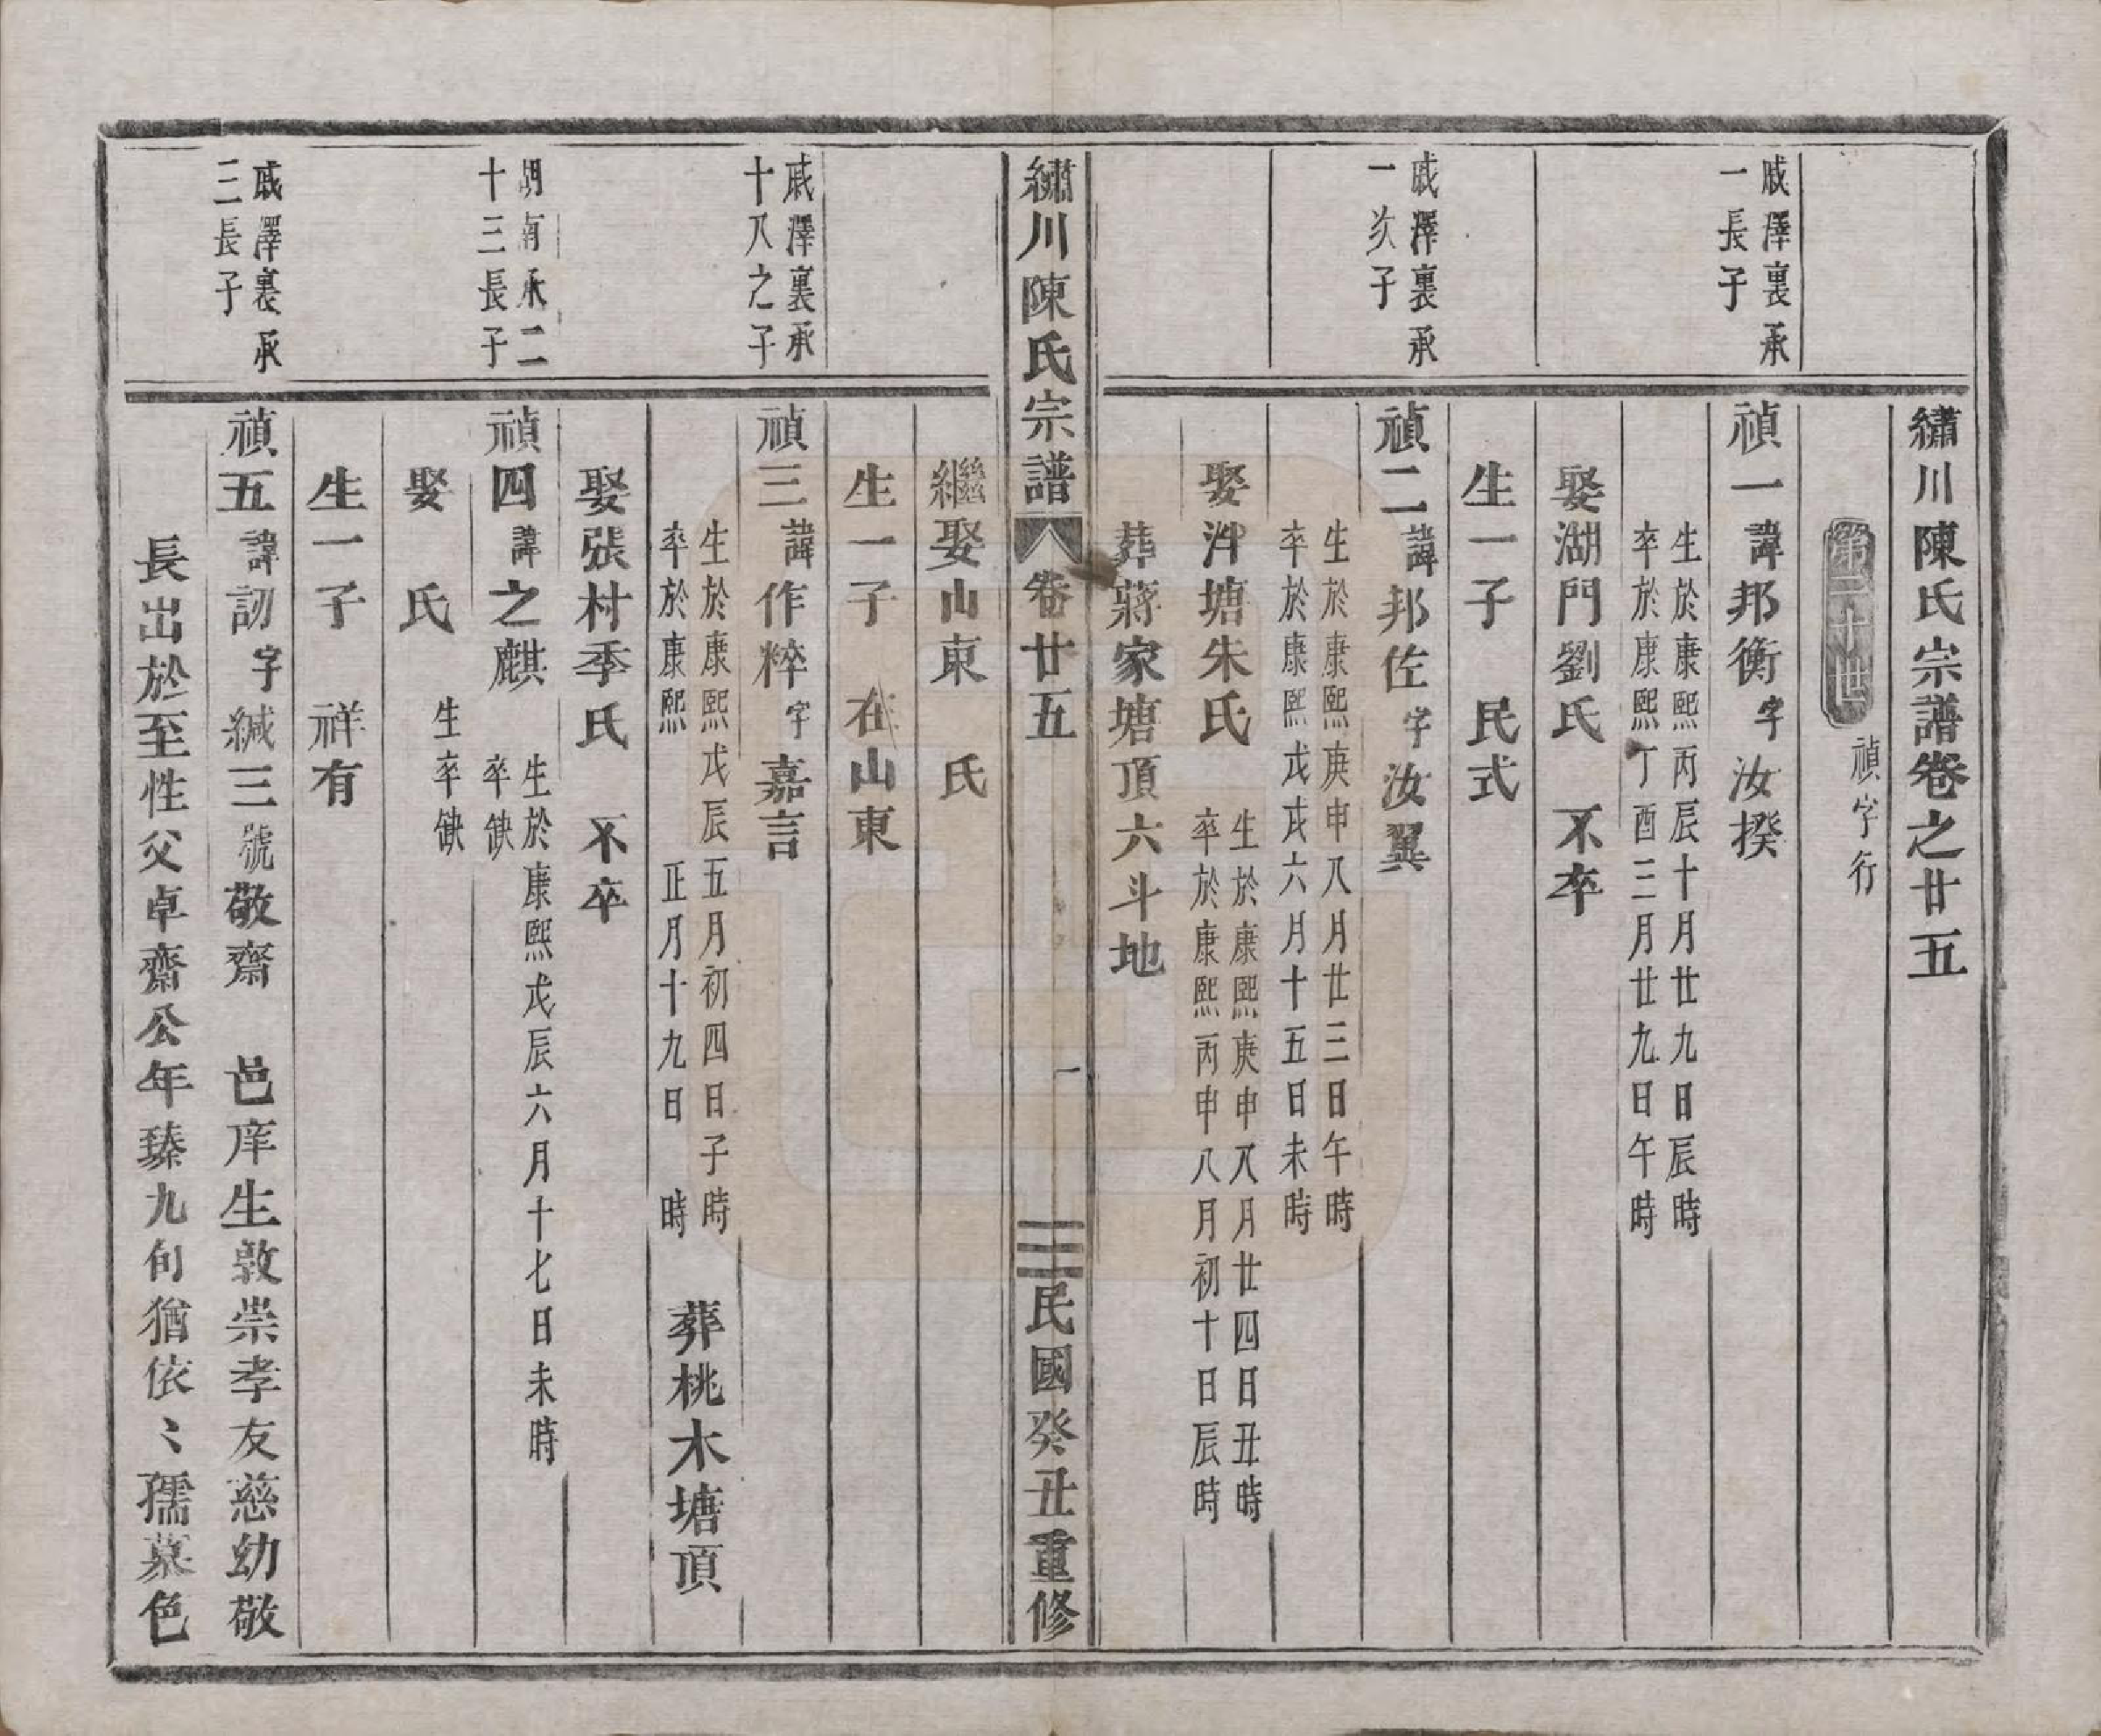 繡川陳氏宗譜卷之廿五
第二十世
禎字行
戚澤裏承
一長子
禎一諱邦衡字汝揆
生於康熙丙辰十月廿九日辰時
卒於康熙丁酉三月廿九日午時
娶湖門劉氏 不卒
生一子 民式
戚澤裏承
一次子
禎二諱邦佐字汝翼
生於康熙庚申八月廿三日午時
卒於康熙戊戌六月十五日未時
娶沖塘朱氏
生於康熙庚申八月廿四日丑時
卒於康熙丙申八月初十日辰時
葬蔣家塘頂六斗地
繡川陳氏宗譜 卷廿五 一 民國癸丑重修
繼娶山東 氏
生一子 在山東
戚澤裏承
十八之子
禎三諱作粹字嘉言
生於康熙戊辰五月初四日子時
卒於康熙 正月十九日 時
葬桃木塘頂
娶張村季氏 不卒
湖南承二
十三長子
禎四諱之麒
生於康熙戊辰六月十七日未時
卒缺
娶 氏
生卒缺
生一子 祥有
戚澤裏承
二長子
禎五諱訒字緘三號敬齋 邑庠生敦崇孝友慈幼敬
長出於至性父卓齋公年臻九旬猶依〻孺慕色